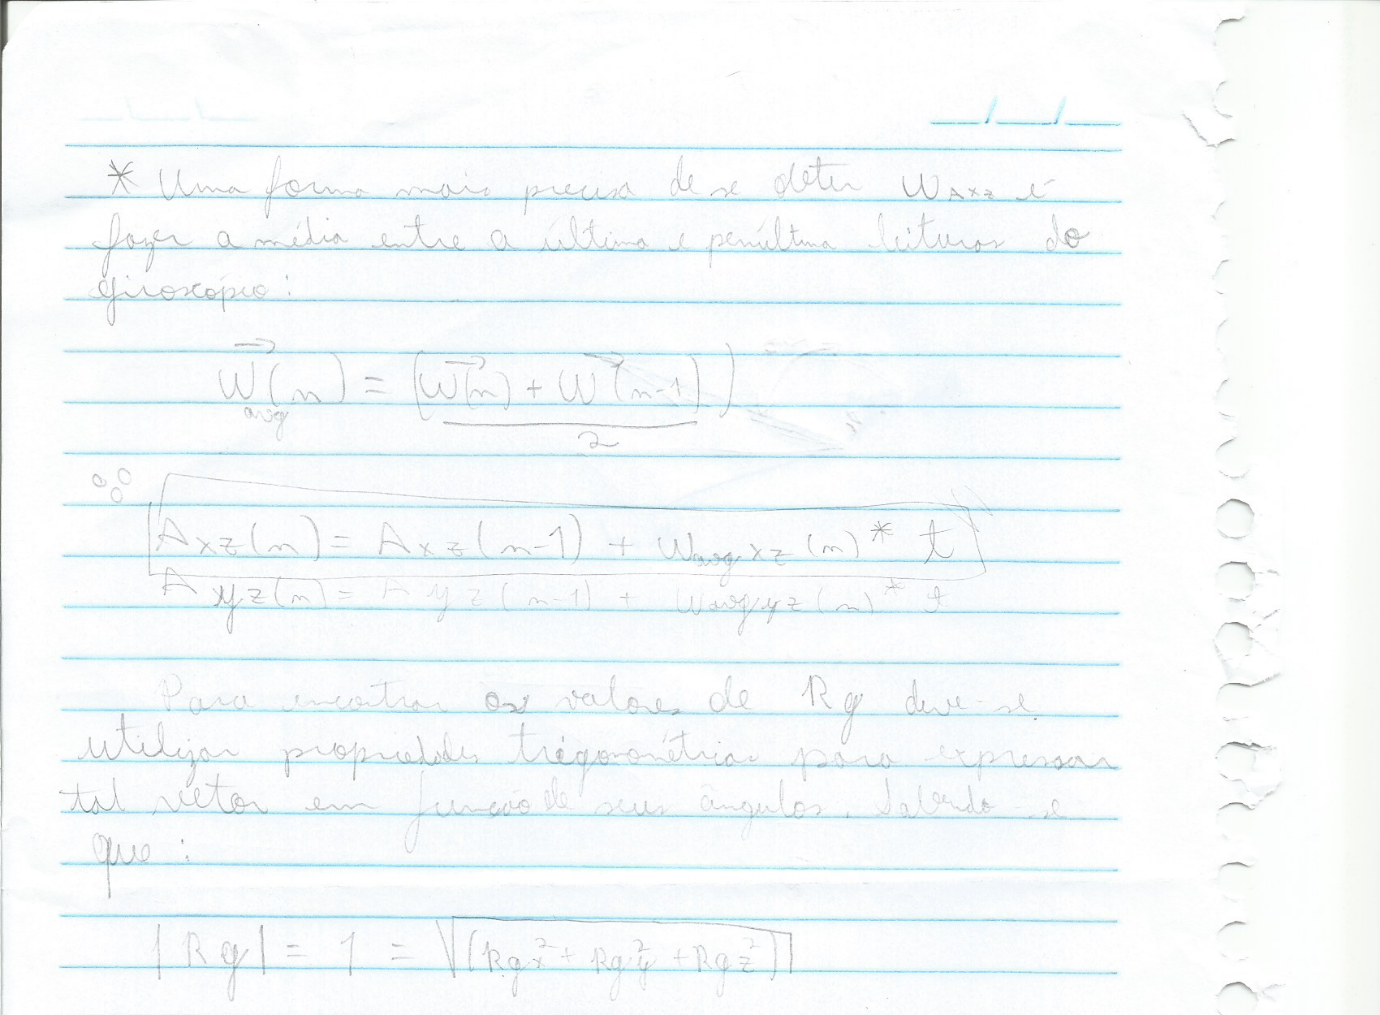 * Uma forma mais precisa de se deter W_Axz é
fazer a média entre a última e penúltima leituras do
giroscópio:
W⃗_avg(n) = (W⃗(n) + W⃗(n-1))/2
∴
Axz(n) = Axz(n-1) + Wavgxz(n) * t
Ayz(n) = Ayz(n-1) + Wavgyz(n) * t
Para encontrar os valores de Rg deve-se
utilizar propriedades trigonométricas para expressar
tal vetor em função de seus ângulos. Sabendo-se
que:
|Rg| = 1 = √(Rgx² + Rgy² + Rgz²)